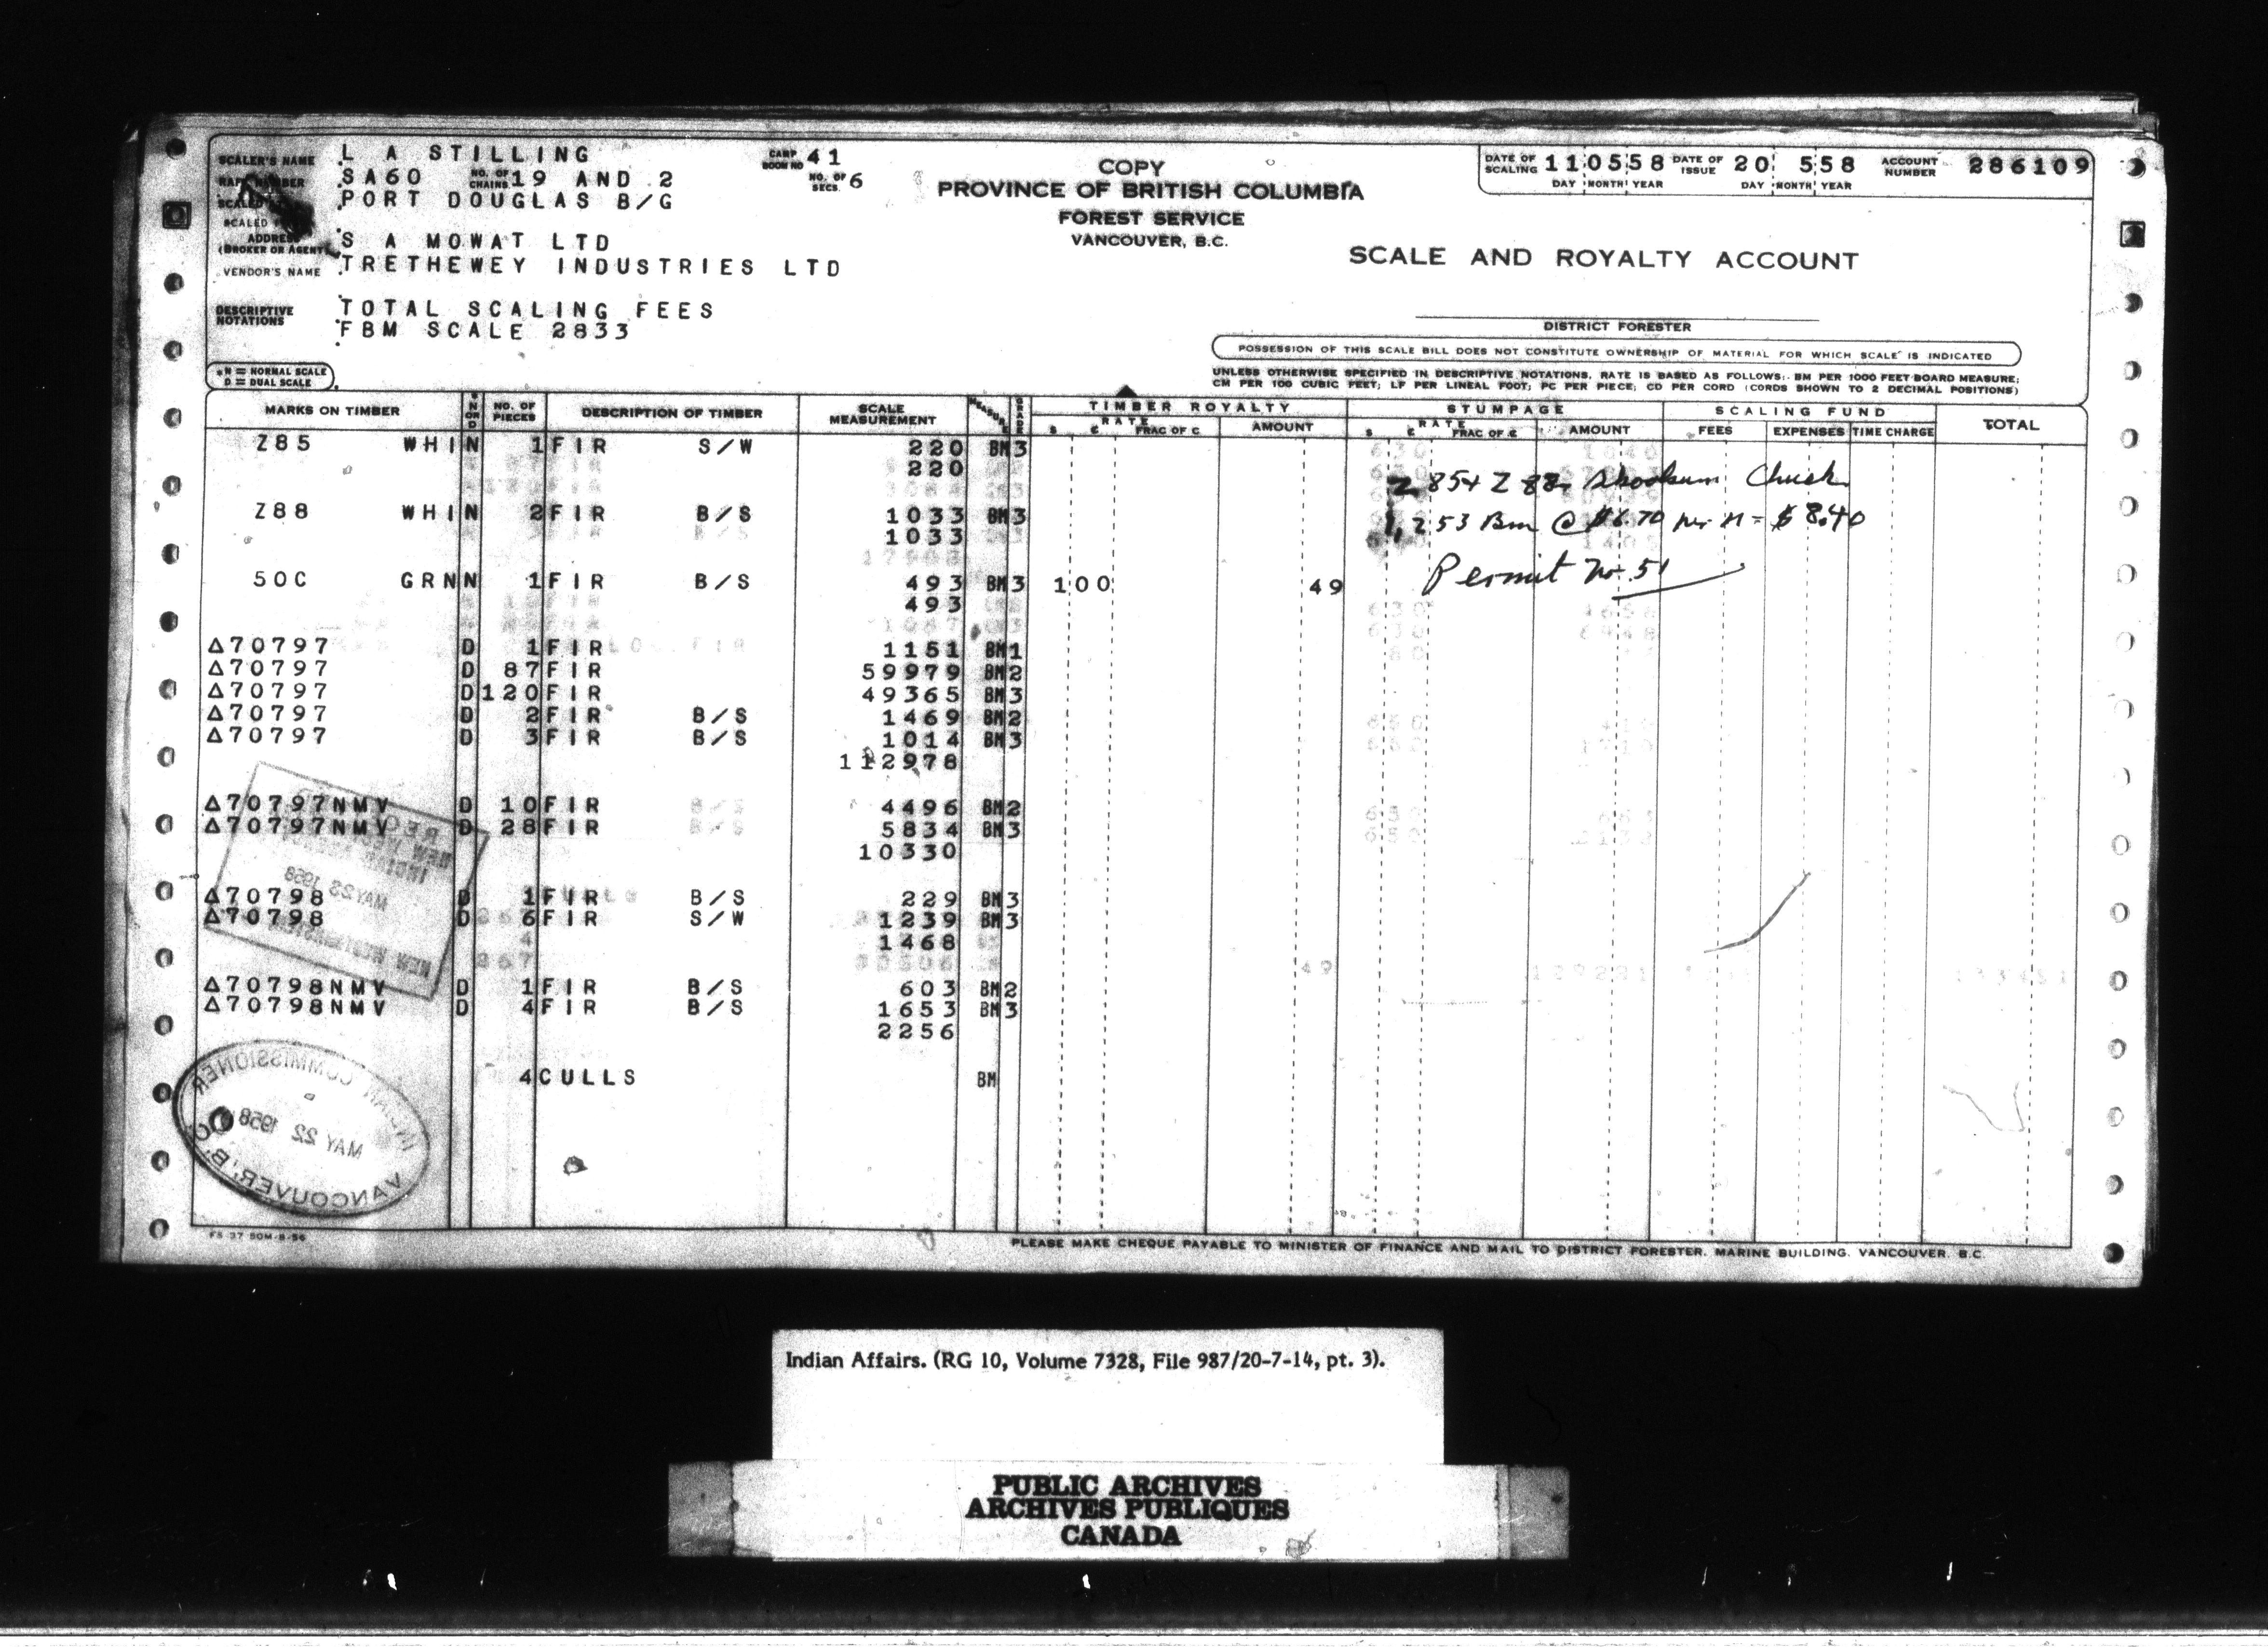 SCALER'S NAME L A STILLING CAMP BOOM NO 41
SA60 NO. OF CHAINS 19 AND 2 NO. OF SECS. 6
PORT DOUGLAS B/G
SCALED
ADDRESS (BROKER OR AGENT) S A MOWAT LTD
VENDOR'S NAME TRETHEWEY INDUSTRIES LTD
DESCRIPTIVE NOTATIONS TOTAL SCALING FEES
FBM SCALE 2833
N = NORMAL SCALE
D = DUAL SCALE
COPY
PROVINCE OF BRITISH COLUMBIA
FOREST SERVICE
VANCOUVER, B.C.
DATE OF SCALING 11 05 58 DATE OF ISSUE 20 5 58 ACCOUNT NUMBER 286109
DAY MONTH YEAR DAY MONTH YEAR
SCALE AND ROYALTY ACCOUNT
DISTRICT FORESTER
POSSESSION OF THIS SCALE BILL DOES NOT CONSTITUTE OWNERSHIP OF MATERIAL FOR WHICH SCALE IS INDICATED
UNLESS OTHERWISE SPECIFIED IN DESCRIPTIVE NOTATIONS, RATE IS BASED AS FOLLOWS:- BM PER 1000 FEET BOARD MEASURE;
CM PER 100 CUBIC FEET; LF PER LINEAL FOOT; PC PER PIECE; CD PER CORD (CORDS SHOWN TO 2 DECIMAL POSITIONS)
MARKS ON TIMBER N OR D NO. OF PIECES DESCRIPTION OF TIMBER SCALE MEASUREMENT MEASURE GRADE TIMBER ROYALTY STUMPAGE SCALING FUND TOTAL
$ RATE ¢ FRAC OF C AMOUNT $ RATE ¢ FRAC OF ¢ AMOUNT FEES EXPENSES TIME CHARGE
Z85 WHI N 1 FIR S/W 220 BM 3
220
Z 85 + Z 88, Skookum Chuck
Z88 WHI N 2 FIR B/S 1033 BM 3
1033
1,253 Bm @ $6.70 per M = $8.40
50C GRN N 1 FIR B/S 493 BM 3 1 00 49
493
Permit No. 51
Δ70797 D 1 FIR 1151 BM 1
Δ70797 D 87 FIR 59979 BM 2
Δ70797 D 120 FIR 49365 BM 3
Δ70797 D 2 FIR B/S 1469 BM 2
Δ70797 D 3 FIR B/S 1014 BM 3
112978
Δ70797NMV D 10 FIR 4496 BM 2
Δ70797NMV D 28 FIR 5834 BM 3
10330
Δ70798 D 1 FIR B/S 229 BM 3
Δ70798 D 6 FIR S/W 1239 BM 3
1468
Δ70798NMV D 1 FIR B/S 603 BM 2
Δ70798NMV D 4 FIR B/S 1653 BM 3
2256
4 CULLS BM
MAY 23 1958
NEW WESTMINSTER
INDIAN COMMISSIONER
MAY 22 1958
VANCOUVER, B.C.
FS 37 50M-8-56
PLEASE MAKE CHEQUE PAYABLE TO MINISTER OF FINANCE AND MAIL TO DISTRICT FORESTER, MARINE BUILDING, VANCOUVER, B.C.
Indian Affairs. (RG 10, Volume 7328, File 987/20-7-14, pt. 3).
PUBLIC ARCHIVES
ARCHIVES PUBLIQUES
CANADA